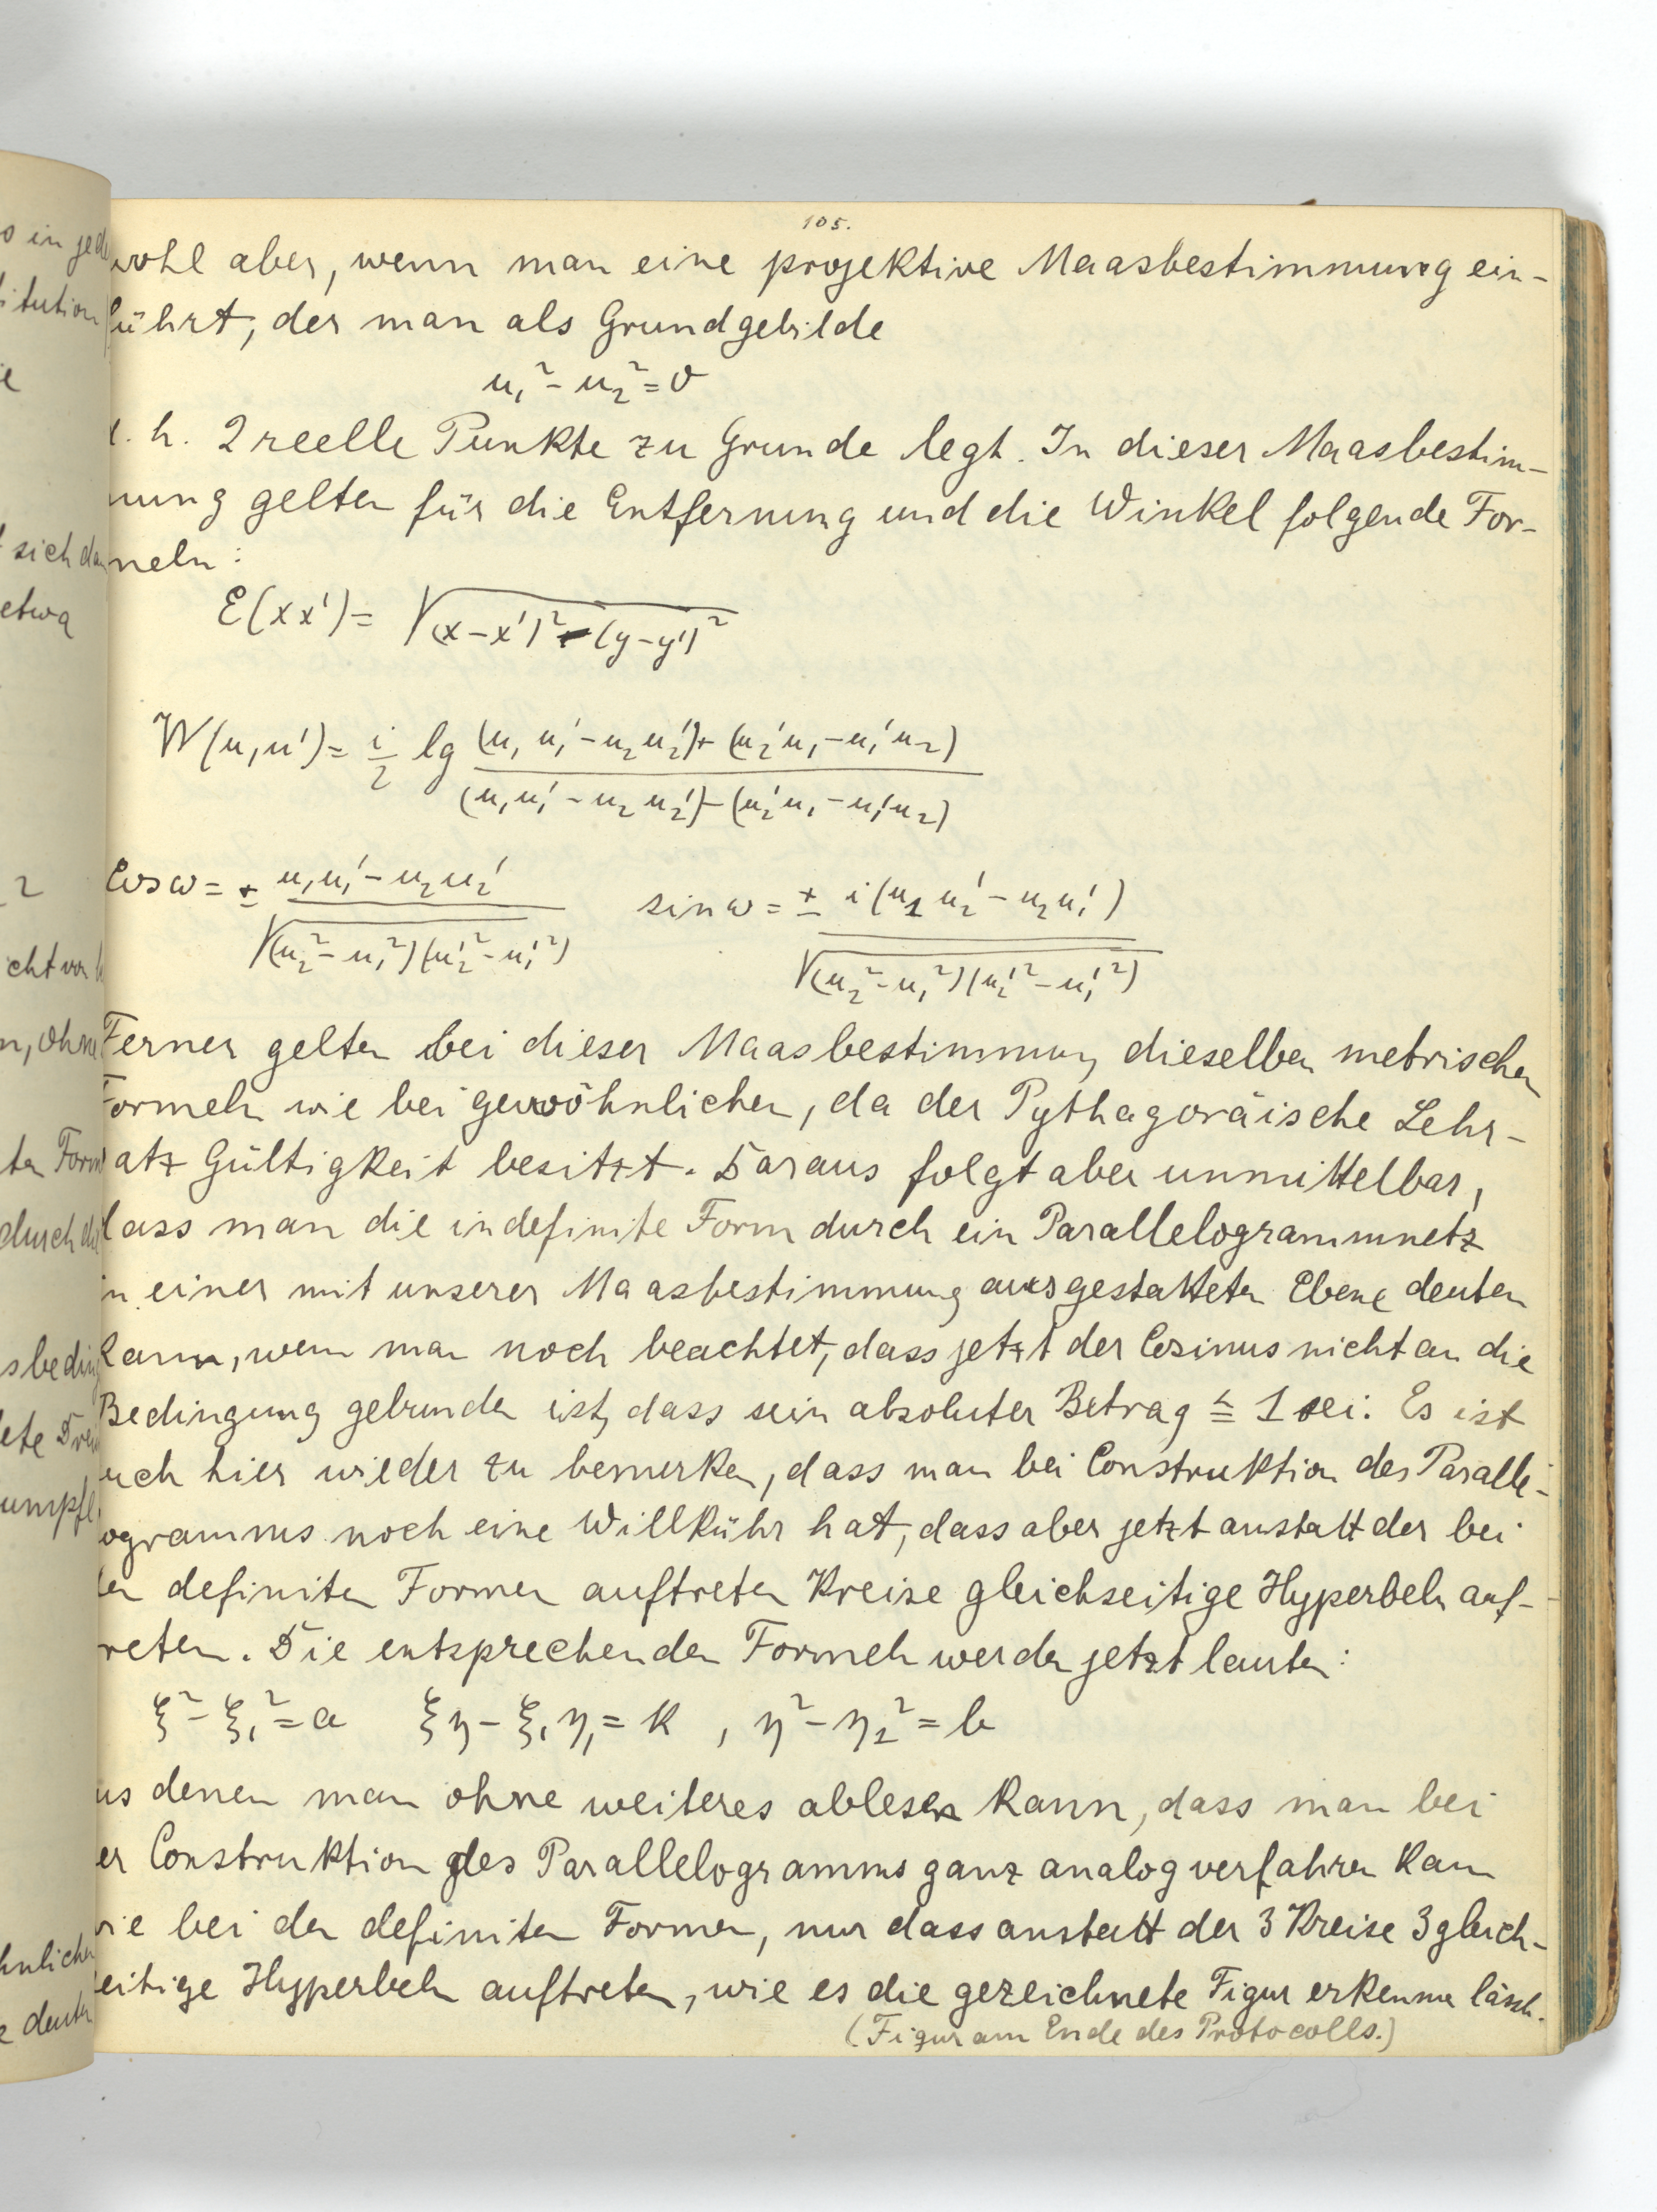 105.
wohl aber, wenn man eine projektive Maasbestimmung ein-
führt, der man als Grundgebilde
u₁² - u₂² = 0
d. h. 2 reelle Punkte zu Grunde legt. In dieser Maasbestim-
mung gelten für die Entfernung und die Winkel folgende For-
meln:
E(xx') = √(x-x')² - (y-y')²
W(u,u') = i/2 lg (u₁u₁' - u₂u₂') + (u₂'u₁ - u₁'u₂) / (u₁u₁' - u₂u₂') - (u₂'u₁ - u₁'u₂)
Cos ω = ± u₁u₁' - u₂u₂' / √(u₂² - u₁²)(u₂'² - u₁'²) sin ω = ± i(u₁u₂' - u₂u₁') / √(u₂² - u₁²)(u₂'² - u₁'²)
Ferner gelten bei dieser Maasbestimmung dieselben metrischen
Formeln wie bei gewöhnlicher, da der Pythagoräische Lehr-
satz Gültigkeit besitzt. Daraus folgt aber unmittelbar,
dass man die indefinite Form durch ein Parallelogrammnetz
in einer mit unserer Maasbestimmung ausgestatteten Ebene deuten
kann, wenn man noch beachtet, dass jetzt der Cosinus nicht an die
Bedingung gebunden ist, dass sein absoluter Betrag ≦ 1 sei. Es ist
auch hier wieder zu bemerken, dass man bei Construktion des Paralle-
logramms noch eine Willkühr hat, dass aber jetzt anstatt der bei
den definiten Formen auftreten Kreise gleichseitige Hyperbeln auf-
treten. Die entsprechenden Formeln werden jetzt lauten:
ξ² - ξ₁² = a ξη - ξ₁η₁ = k , η² - η₁² = b
aus denen man ohne weiteres ablesen kann, dass man bei
der Construktion des Parallelogramms ganz analog verfahren kann
wie bei den definiten Formen, nur dass anstatt der 3 Kreise 3 gleich-
seitige Hyperbeln auftreten, wie es die gezeichnete Figur erkennen lässt.
(Figur am Ende des Protocolls.)